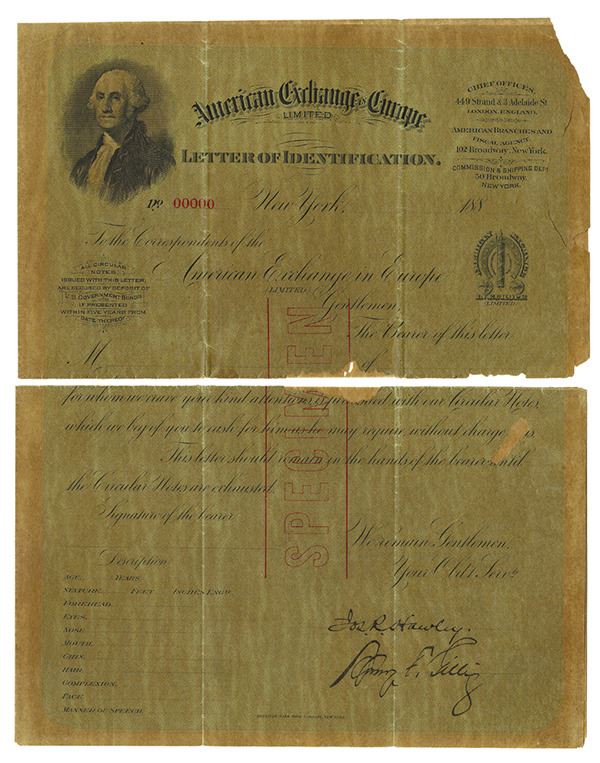 American Exchange in Europe
LIMITED
LETTER OF IDENTIFICATION.
CHIEF OFFICES.
449 Strand & 3 Adelaide St
LONDON, ENGLAND.
AMERICAN BRANCHES AND
FISCAL AGENCY.
102 Broadway, New York.
COMMISSION & SHIPPING DEPT
50 Broadway,
NEW YORK.
No 00000 New York, 188
To the Correspondents of the
American Exchange in Europe
(LIMITED)
Gentlemen,
ALL CIRCULAR
NOTES
ISSUED WITH THIS LETTER,
ARE SECURED BY DEPOSIT OF
U.S. GOVERNMENT BONDS
IF PRESENTED
WITHIN FIVE YEARS FROM
DATE THEREOF
(LIMITED)
The Bearer of this letter
M of
for whom we crave your kind attention is provided with our Circular Notes,
which we beg of you to cash for him as he may require, without charge
This letter should remain in the hands of the bearer until
the Circular Notes are exhausted.
Signature of the bearer
SPECIMEN
We remain Gentlemen,
Your Obdt Servts
Description
AGE. YEARS
STATURE. FEET INCHES ENGH
FOREHEAD.
EYES.
NOSE.
MOUTH.
CHIN.
HAIR.
COMPLEXION.
FACE.
MANNER OF SPEECH.
Jos. R. Hawley.
Henry F. Gillig
AMERICAN BANK NOTE COMPANY, NEW YORK.